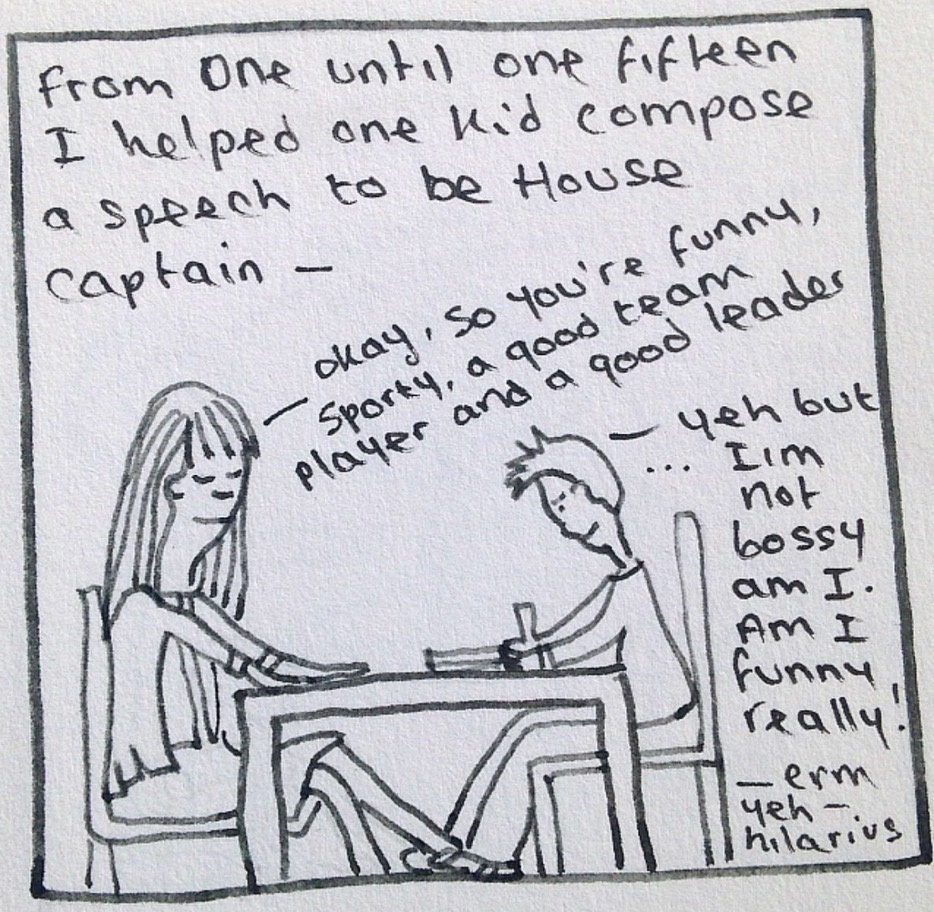 From One until one fifteen
I helped one kid compose
a speech to be House
Captain —
okay, so you're funny,
sporty, a good team
player and a good leader
— yeh but
... I'm
not
bossy
am I.
Am I
funny
really!
— erm
yeh —
hilarius